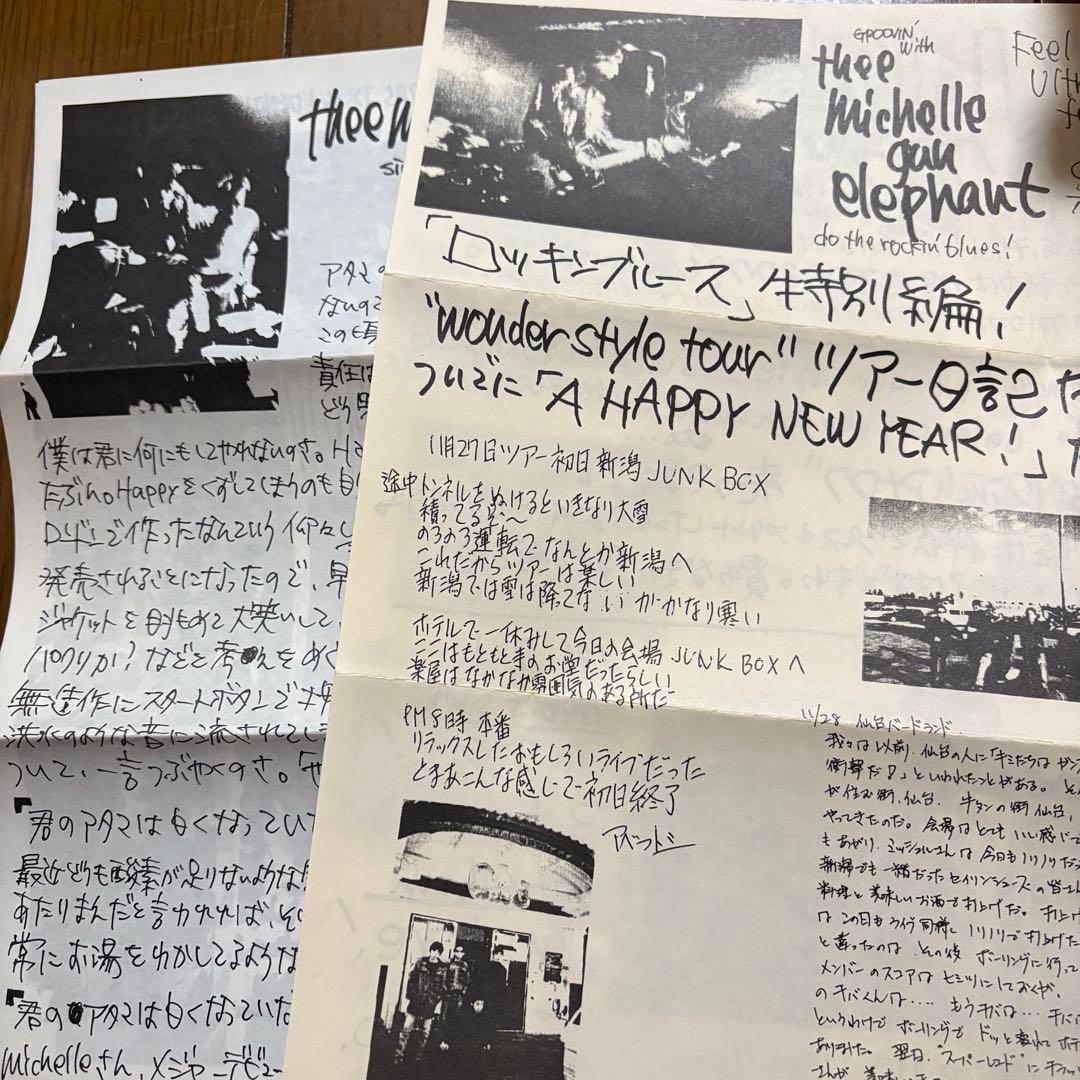 thee
アタマの
ないので
この頃
責任は
僕は君に何にもしてやれないのさ。
たぶん。Happyをくずしてしまうのも自
ロンドンで作ったなんていう
発売されることになったので、早
ジャケットを目もめて大笑いして
パクリか?などと考えをめぐ
無造作にスタートボタンで
洪水のような音に流されてし
ついて、一言つぶやくのさ。「せ
「君のアタマは白くなってい
最近どうも酸素が足りないような
あたりまえだと言われれば、そ
常にお湯をわかしてるような
「君のアタマは白くなっていな
Michelleさん、メジャーデビュー
GROOVIN'
with
thee
michelle
gun
elephant
do the rockin' blues!
Feel
「ロッキンブルース」特別編!
"wonder style tour" ツアー日記
ついでに「A HAPPY NEW YEAR!」
11月27日ツアー初日 新潟 JUNK BOX
途中トンネルをぬけるといきなり大雪
積ってる学〜
のろのろ運転でなんとか新潟へ
これだからツアーは楽しい
新潟では雪は降ってないがかなり寒い
ホテルで一休みして今日の会場 JUNK BOXへ
ここはもともと寺のお堂だったらしい
楽屋はなかなか雰囲気のある所だ
PM8時 本番
リラックスしたおもしろいライブだった
とまあこんな感じで初日終了
アベフトシ
11/28 仙台バードランド
我々は以前、仙台の人に「キミたちは
衝撃だ!!」といわれたことがある。
が住む街、仙台。牛タンの街仙台、
やってきたのだ。会場はとてもいい感じで
もあがり、ミッシェルさんは今日もノリノリだっ
新潟でも一緒だったセイリンシューズの皆さん
料理と美味しいお酒で打上げだ。打上げ
はこの日もライヴ同様に、ノリノリで打上げた
と言ったのは、その後ボーリングに行って
メンバーのスコアはヒミツにしておくが、
のチバくんは‥‥ もうチバは‥‥ チバ
というわけで ボーリングで ドッと疲れて ホテ
ありました。翌日、"スーパーレコード"に